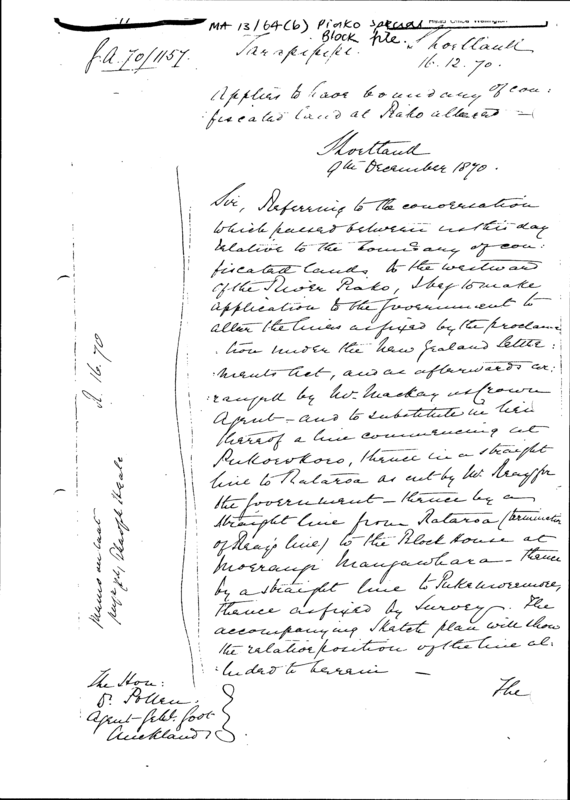 MA 13/64(b) Piako Special
Block file.
Head Office Wellington
J.A. 70/1157.
Tarapipipi. Shortland
16.12.70.
Applies to have boundary of con:
fiscated land at Piako altered
Shortland
9th December 1870.
Sir, Referring to the conversation
which passed between us this day
relative to the boundary of con:
fiscated lands to the westward
of the River Piako, I beg to make
application to the Government to
alter the lines as fixed by the proclama
:tion under the New Zealand Settle:
:ments Act, and as afterwards ar:
:ranged by Mr. Mackay as Crown
Agent – and to substitute in lieu
thereof a line commencing at
Pukorokoro, thence in a straight
line to Rataroa as cut by Mr. for
the Government – thence by a
straight line from Rataroa (termination
of line) to the Block House at
Moerangi Mangawhara – thence
by a straight line to
thence as fixed by survey. The
accompanying sketch plan will show
the relative position of the line al:
:luded to herein –
The
The Hon:
Dr. Pollen.
Agent Genl. Govt.
Auckland
16.70
Minns on last
page,